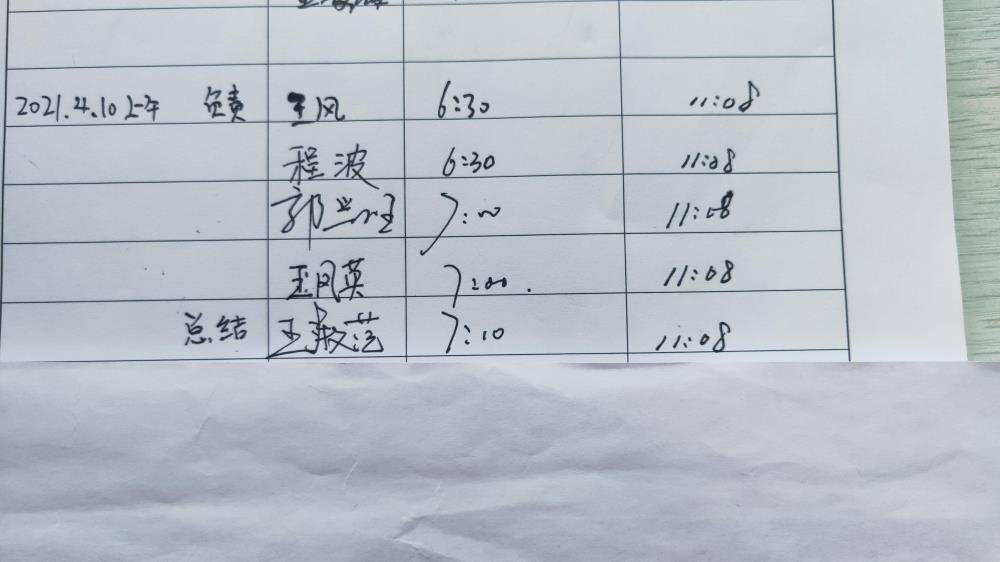 2021.4.10上午 负责 王风 6:30 11:08
程波 6:30 11:08
郭兴旺 7:00 11:08
王风英 7:00. 11:08
总结 王淑范 7:10 11:08